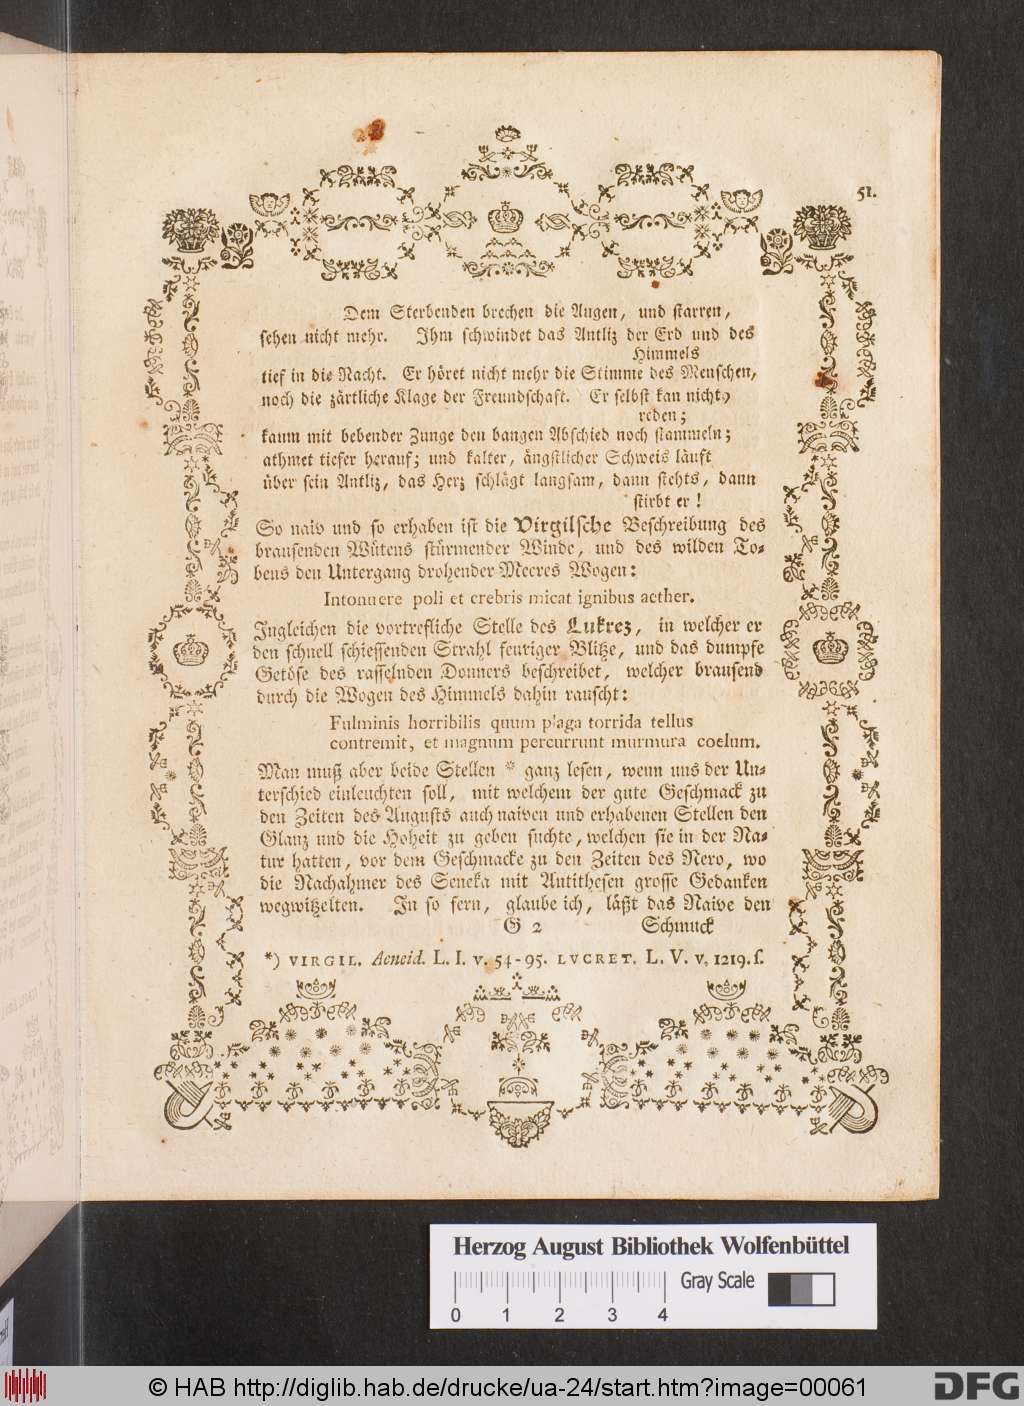 51.
Dem Sterbenden brechen die Augen, und starren,
sehen nicht mehr. Ihm schwindet das Antliz der Erd und des
Himmels
tief in die Nacht. Er höret nicht mehr die Stimme des Menschen,
noch die zärtliche Klage der Freundschaft. Er selbst kan nicht
reden;
kaum mit bebender Zunge den bangen Abschied noch stammeln;
athmet tiefer herauf; und kalter, ängstlicher Schweis läuft
über sein Antliz, das Herz schlägt langsam, dann stehts, dann
stirbt er!
So naiv und so erhaben ist die Virgilsche Beschreibung des
brausenden Wütens stürmender Winde, und des wilden To-
bens den Untergang drohender Meeres Wogen:
Intonuere poli et crebris micat ignibus aether.
Ingleichen die vortrefliche Stelle des Lukrez, in welcher er
den schnell schiessenden Strahl feuriger Blitze, und das dumpfe
Getöse des rasselnden Donners beschreibet, welcher brausend
durch die Wogen des Himmels dahin rauscht:
Fulminis horribilis quum plaga torrida tellus
contremit, et magnum percurrunt murmura coelum.
Man muß aber beide Stellen * ganz lesen, wenn uns der Un-
terschied einleuchten soll, mit welchem der gute Geschmack zu
den Zeiten des Augusts auch naiven und erhabenen Stellen den
Glanz und die Hoheit zu geben suchte, welchen sie in der Na-
tur hatten, vor dem Geschmacke zu den Zeiten des Nero, wo
die Nachahmer des Seneka mit Antithesen grosse Gedanken
wegwitzelten. In so fern, glaube ich, läßt das Naive den
G 2 Schmuck
*) VIRGIL. Aeneid. L. I. v. 54-95. LVCRET. L. V. v. 1219. f.
Herzog August Bibliothek Wolfenbüttel
Gray Scale
0 1 2 3 4
© HAB http://diglib.hab.de/drucke/ua-24/start.htm?image=00061
DFG